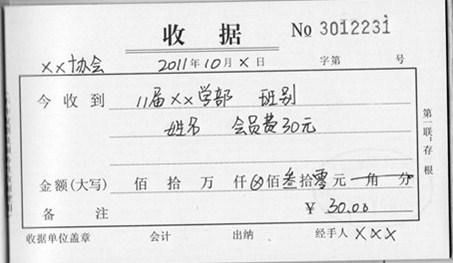 收据 No 3012231
xx协会 2011年10月x日 字第 号
今收到 11届xx学部 班别
姓名 会员费30元
金额(大写) 佰 拾 万 仟⊗佰叁拾零元 角 分
备 注 ¥ 30.00
收据单位盖章 会计 出纳 经手人 xxx
第一联:存根